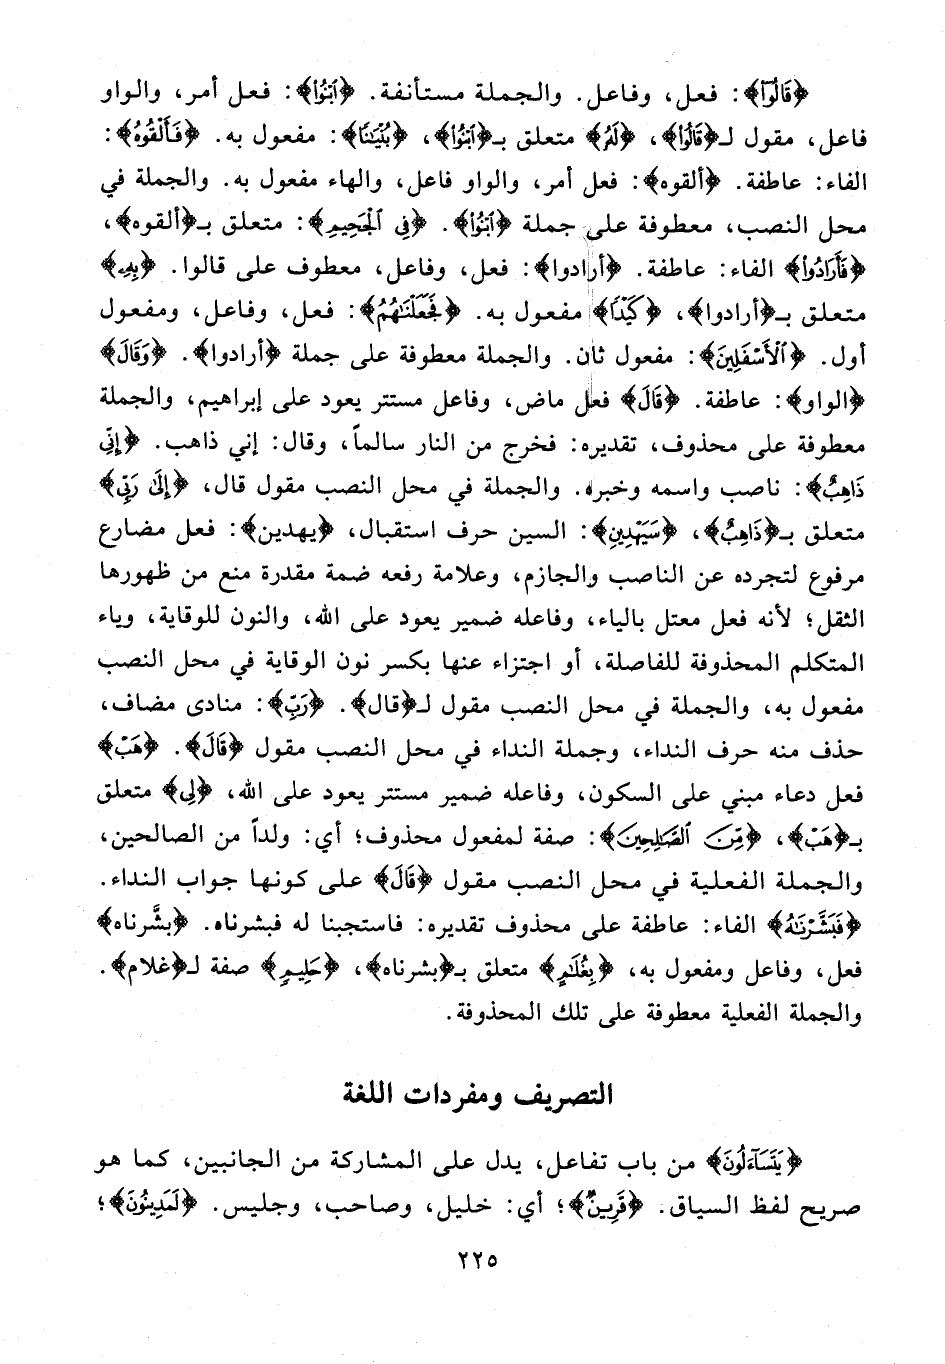 ﴿قَالُوا﴾: فعل، وفاعل. والجملة مستأنفة. ﴿ابْنُوا﴾: فعل أمر، والواو
فاعل، مقول لـ﴿قَالُوا﴾، ﴿لَهُ﴾ متعلق بـ﴿ابْنُوا﴾، ﴿بُنْيَانًا﴾: مفعول به. ﴿فَأَلْقُوهُ﴾:
الفاء: عاطفة. ﴿ألقوه﴾: فعل أمر، والواو فاعل، والهاء مفعول به. والجملة في
محل النصب، معطوفة على جملة ﴿ابْنُوا﴾. ﴿فِي الْجَحِيمِ﴾: متعلق بـ﴿ألقوه﴾،
﴿فَأَرَادُوا﴾ الفاء: عاطفة. ﴿أرادوا﴾: فعل، وفاعل، معطوف على قالوا. ﴿بِهِ﴾
متعلق بـ﴿أرادوا﴾، ﴿كَيْدًا﴾ مفعول به. ﴿فَجَعَلْنَاهُمُ﴾: فعل، وفاعل، ومفعول
أول. ﴿الْأَسْفَلِينَ﴾: مفعول ثان. والجملة معطوفة على جملة ﴿أرادوا﴾. ﴿وَقَالَ﴾
﴿الواو﴾: عاطفة. ﴿قَالَ﴾ فعل ماض، وفاعل مستتر يعود على إبراهيم، والجملة
معطوفة على محذوف، تقديره: فخرج من النار سالماً، وقال: إني ذاهب. ﴿إِنِّي
ذَاهِبٌ﴾: ناصب واسمه وخبره. والجملة في محل النصب مقول قال، ﴿إِلَى رَبِّي﴾
متعلق بـ﴿ذَاهِبٌ﴾، ﴿سَيَهْدِينِ﴾: السين حرف استقبال، ﴿يهدين﴾: فعل مضارع
مرفوع لتجرده عن الناصب والجازم، وعلامة رفعه ضمة مقدرة منع من ظهورها
الثقل؛ لأنه فعل معتل بالياء، وفاعله ضمير يعود على الله، والنون للوقاية، وياء
المتكلم المحذوفة للفاصلة، أو اجتزاء عنها بكسر نون الوقاية في محل النصب
مفعول به، والجملة في محل النصب مقول لـ﴿قال﴾. ﴿رَبِّ﴾: منادى مضاف،
حذف منه حرف النداء، وجملة النداء في محل النصب مقول ﴿قَالَ﴾. ﴿هَبْ﴾
فعل دعاء مبني على السكون، وفاعله ضمير مستتر يعود على الله، ﴿لِي﴾ متعلق
بـ﴿هَبْ﴾، ﴿مِنَ الصَّالِحِينَ﴾: صفة لمفعول محذوف؛ أي: ولداً من الصالحين،
والجملة الفعلية في محل النصب مقول ﴿قَالَ﴾ على كونها جواب النداء.
﴿فَبَشَّرْنَاهُ﴾ الفاء: عاطفة على محذوف تقديره: فاستجبنا له فبشرناه. ﴿بشَّرناه﴾
فعل، وفاعل ومفعول به، ﴿بِغُلَامٍ﴾ متعلق بـ﴿بشرناه﴾، ﴿حَلِيمٍ﴾ صفة لـ﴿غلام﴾.
والجملة الفعلية معطوفة على تلك المحذوفة.
التصريف ومفردات اللغة
﴿يَتَسَاءَلُونَ﴾ من باب تفاعل، يدل على المشاركة من الجانبين، كما هو
صريح لفظ السياق. ﴿قَرِينٌ﴾؛ أي: خليل، وصاحب، وجليس. ﴿لَمَدِينُونَ﴾؛
٢٢٥